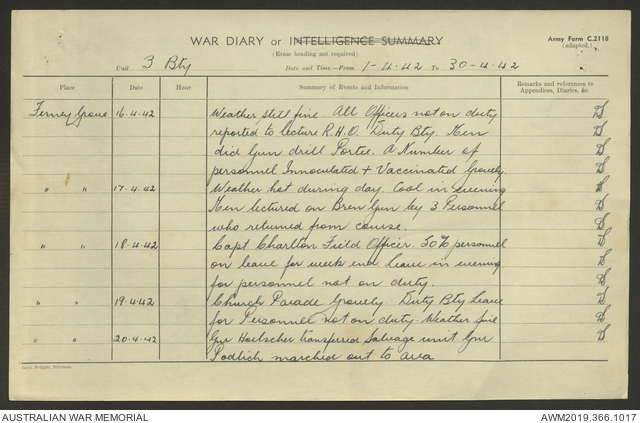 WAR DIARY or INTELLIGENCE SUMMARY
Army Form C.2118
(adapted.)
(Erase heading not required)
Unit 3 Bty Date and Time—From 1-4-42 To 30-4-42
Place Date Hour Summary of Events and Information Remarks and references to Appendices, Diaries, &c.
Ferney Grove 16.4.42 Weather still fine. All Officers not on duty
reported to lecture R.H.Q. Duty Bty. Men
did Gun drill Portee. A Number of
personnel Innoculated + Vaccinated Grovely
" " 17.4.42 Weather hot during day. Cool in evening
Men lectured on Bren Gun by 3 Personnel
who returned from course.
" " 18.4.42 Capt Charlton Field Officer. 50% personnel
on leave for week end. Leave in evening
for personnel not on duty.
" " 19.4.42 Church Parade Grovely. Duty Bty Leave
for Personnel not on duty. Weather fine
" " 20.4.42 Gnr Hoelscher transferred Salvage unit. Gnr
Podlich marched out to area
Govt. Printer, Brisbane
AUSTRALIAN WAR MEMORIAL
AWM2019.366.1017